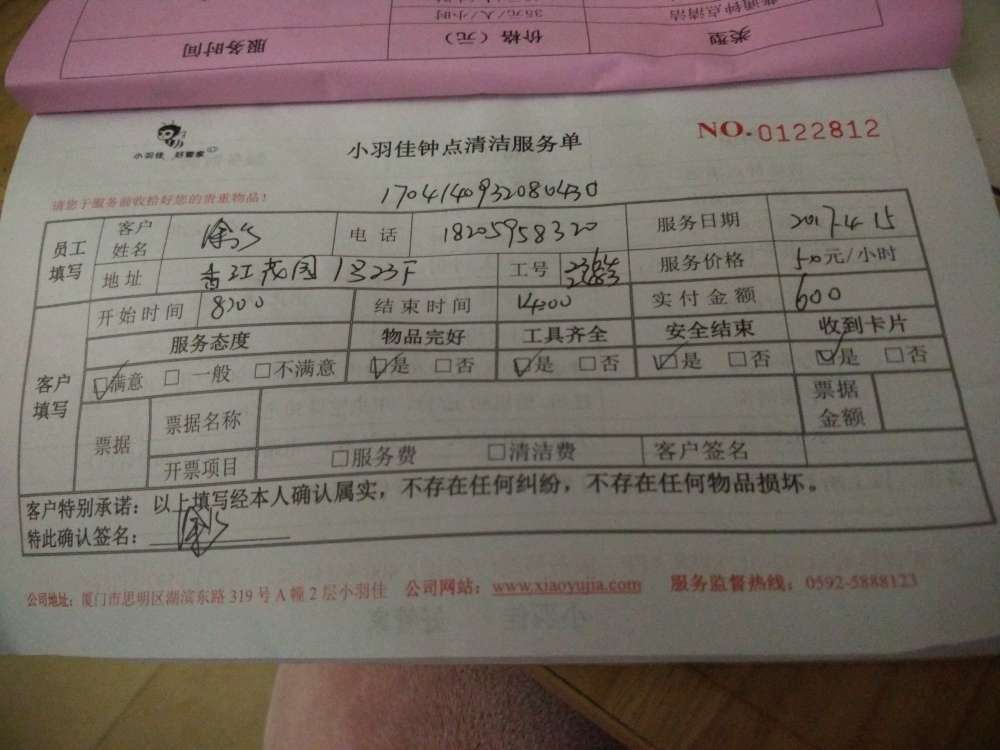 35元/人/小时
普通钟点清洁
服务时间
价格（元）
类型
小羽佳 好管家
小羽佳钟点清洁服务单
NO.0122812
请您于服务前收拾好您的贵重物品！
1704140932080430
员工填写
客户姓名
电话 18205958320
服务日期 2017.4.15
地址
1号23F
工号
服务价格 50元/小时
客户填写
开始时间 8:00
结束时间 14:00
实付金额 600
服务态度 物品完好 工具齐全 安全结束 收到卡片
☑满意 □一般 □不满意 ☑是 □否 ☑是 □否 ☑是 □否 ☑是 □否
票据
票据名称
票据金额
开票项目 □服务费 □清洁费 客户签名
客户特别承诺：以上填写经本人确认属实，不存在任何纠纷，不存在任何物品损坏。
特此确认签名：
公司地址：厦门市思明区湖滨东路319号A幢2层小羽佳 公司网站：www.xiaoyujia.com 服务监督热线：0592-5888123